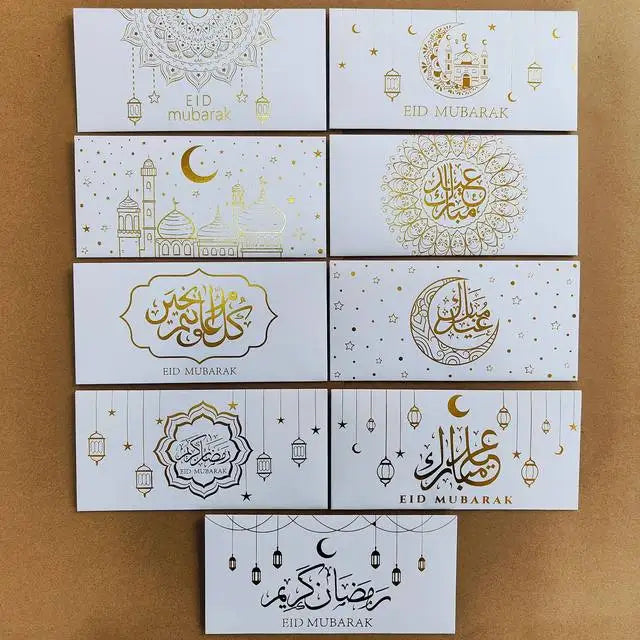 EID
mubarak
EID MUBARAK
عيد
مبارك
كل عام وأنتم بخير
EID MUBARAK
عيد مبارك
رمضان كريم
EID MUBARAK
عيد مبارك
EID MUBARAK
رمضان كريم
EID MUBARAK